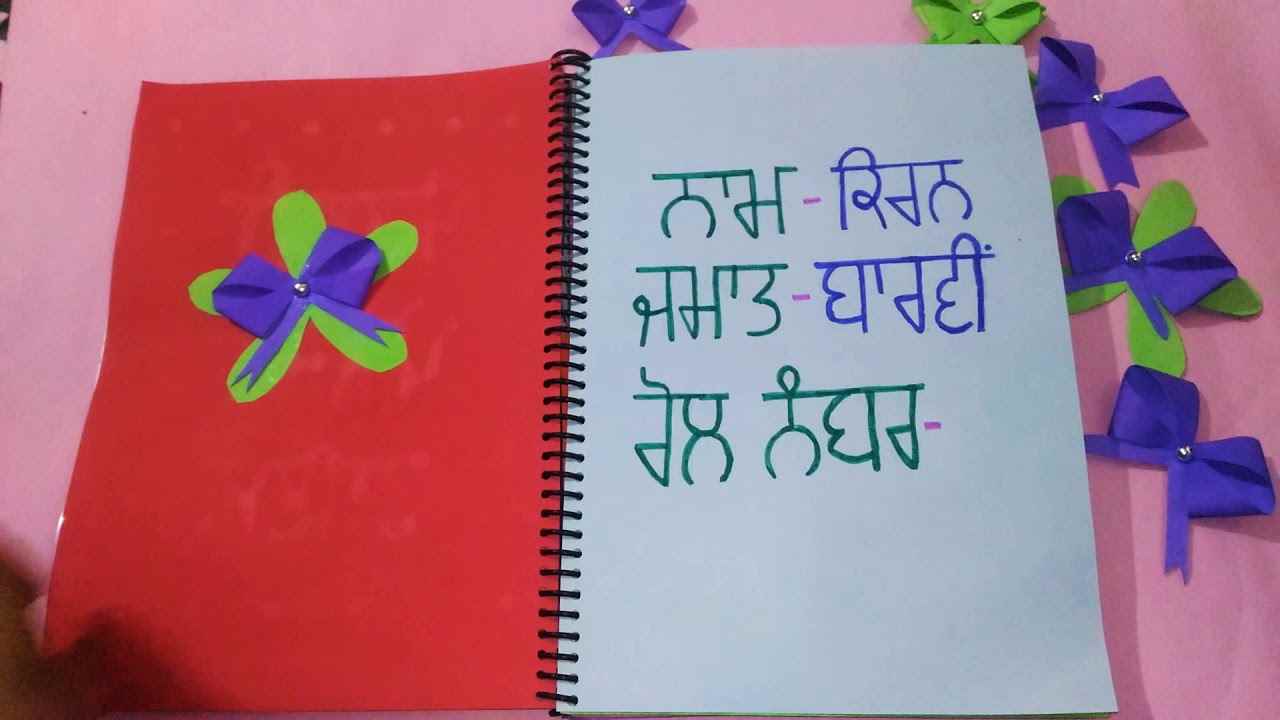 ਨਾਮ - ਕਿਰਨ
ਜਮਾਤ - ਬਾਰਵੀਂ
ਰੋਲ ਨੰਬਰ -